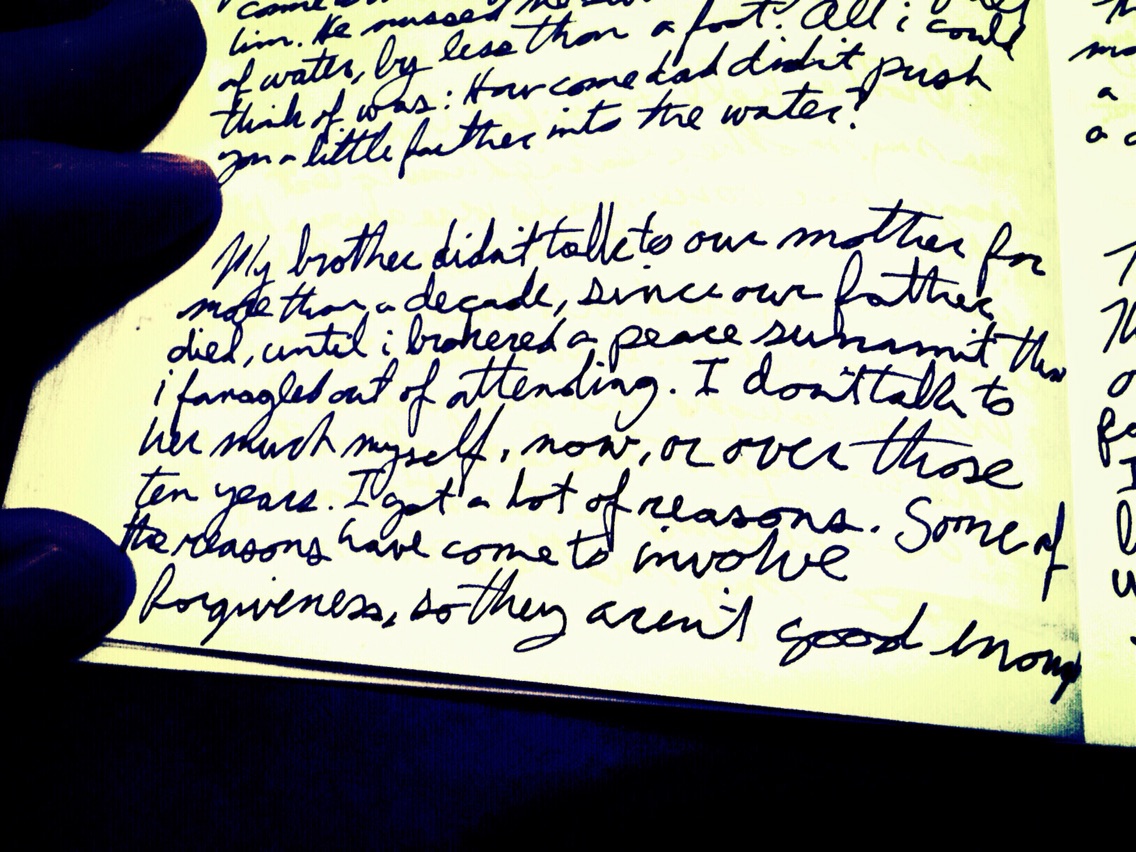 him. He missed the
of water, by less than a foot? All i could
think of was: How come dad didn't push
you a little farther into the water?
My brother didn't talk to our mother for
more than a decade, since our father
died, until i brokered a peace summit
i fanagled out of attending. I don't talk to
her much myself, now, or over those
ten years. I got a lot of reasons. Some of
the reasons have come to involve
forgiveness, so they aren't good enoug